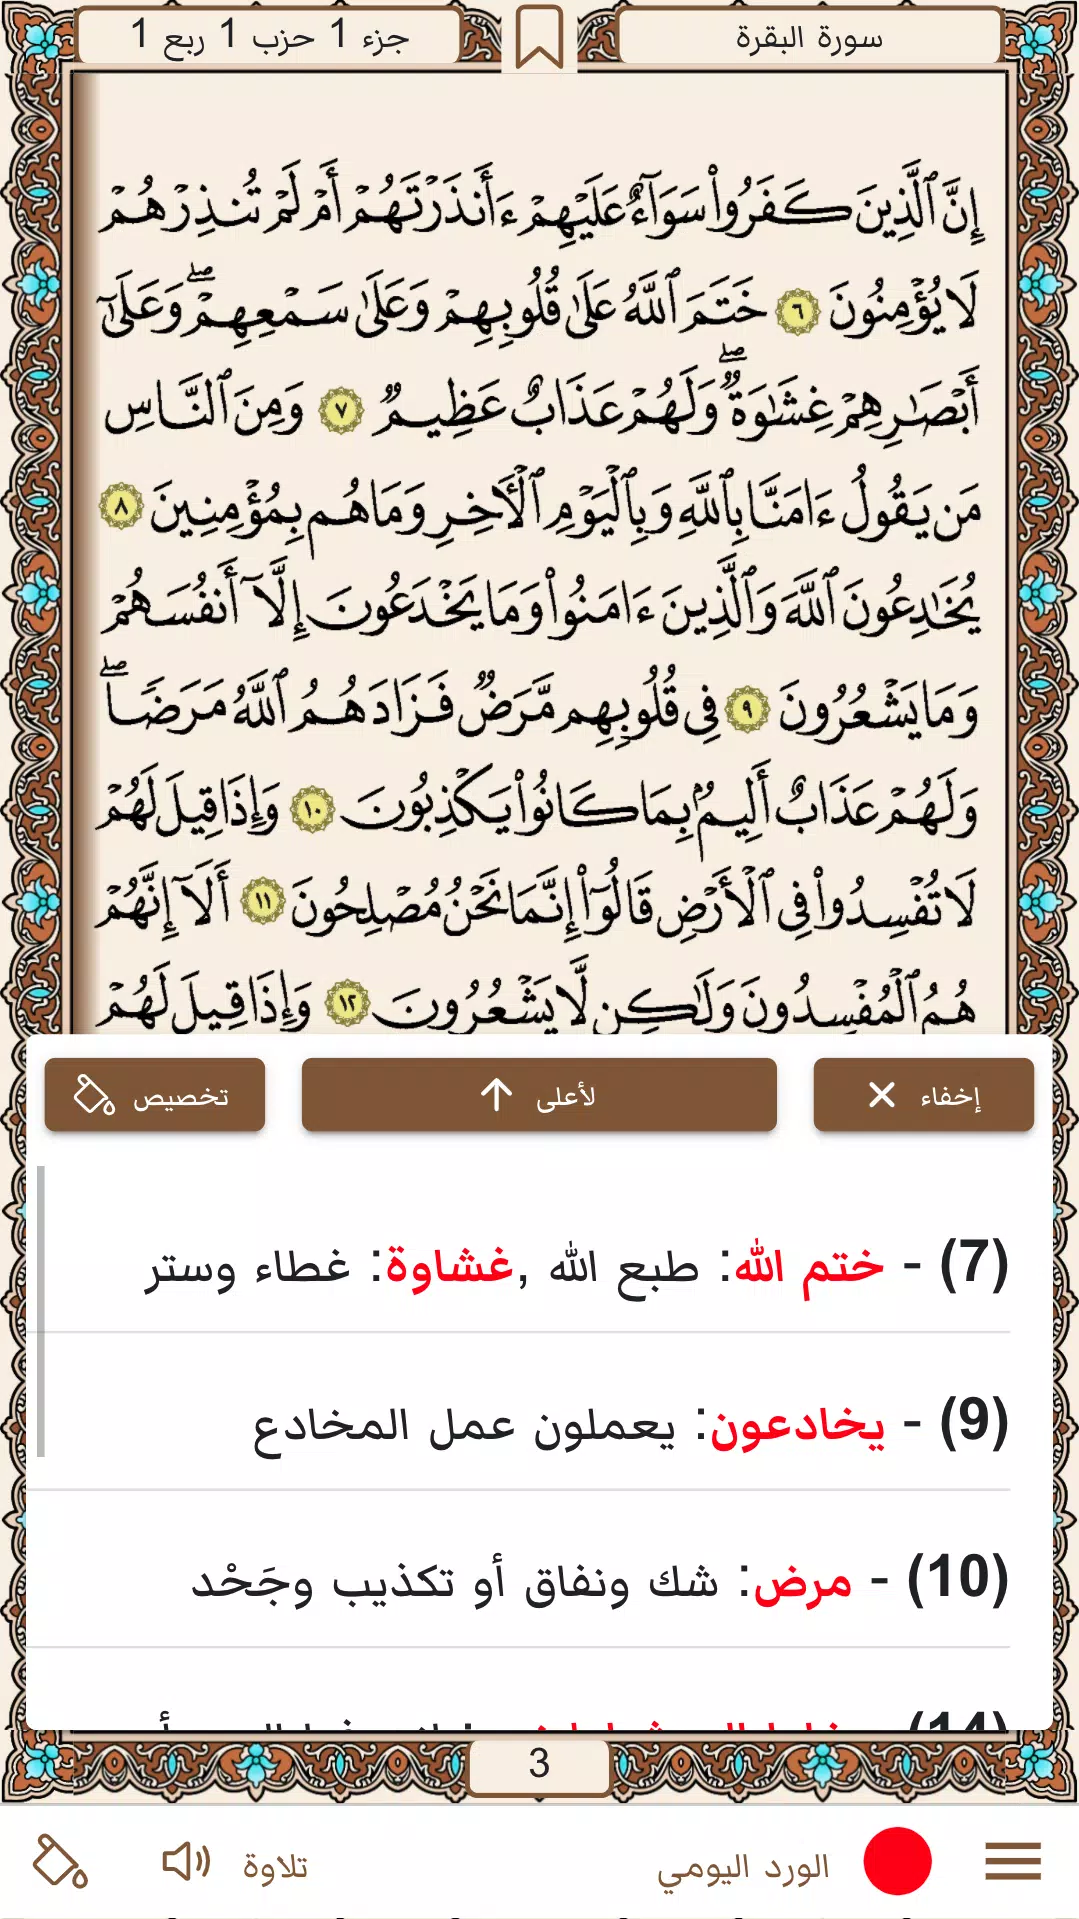 سورة البقرة
جزء 1 حزب 1 ربع 1
إِنَّ ٱلَّذِينَ كَفَرُوا۟ سَوَآءٌ عَلَيْهِمْ ءَأَنذَرْتَهُمْ أَمْ لَمْ تُنذِرْهُمْ
لَا يُؤْمِنُونَ ٦ خَتَمَ ٱللَّهُ عَلَىٰ قُلُوبِهِمْ وَعَلَىٰ سَمْعِهِمْ ۖ وَعَلَىٰٓ
أَبْصَـٰرِهِمْ غِشَـٰوَةٌ ۖ وَلَهُمْ عَذَابٌ عَظِيمٌ ٧ وَمِنَ ٱلنَّاسِ
مَن يَقُولُ ءَامَنَّا بِٱللَّهِ وَبِٱلْيَوْمِ ٱلْـَٔاخِرِ وَمَا هُم بِمُؤْمِنِينَ ٨
يُخَـٰدِعُونَ ٱللَّهَ وَٱلَّذِينَ ءَامَنُوا۟ وَمَا يَخْدَعُونَ إِلَّآ أَنفُسَهُمْ
وَمَا يَشْعُرُونَ ٩ فِى قُلُوبِهِم مَّرَضٌ فَزَادَهُمُ ٱللَّهُ مَرَضًا ۖ
وَلَهُمْ عَذَابٌ أَلِيمٌۢ بِمَا كَانُوا۟ يَكْذِبُونَ ١٠ وَإِذَا قِيلَ لَهُمْ
لَا تُفْسِدُوا۟ فِى ٱلْأَرْضِ قَالُوٓا۟ إِنَّمَا نَحْنُ مُصْلِحُونَ ١١ أَلَآ إِنَّهُمْ
هُمُ ٱلْمُفْسِدُونَ وَلَـٰكِن لَّا يَشْعُرُونَ ١٢ وَإِذَا قِيلَ لَهُمْ
إخفاء
لأعلى
تخصيص
(7) - ختم الله: طبع الله ,غشاوة: غطاء وستر
(9) - يخادعون: يعملون عمل المخادع
(10) - مرض: شك ونفاق أو تكذيب وجَحْد
(14)
3
الورد اليومي
تلاوة